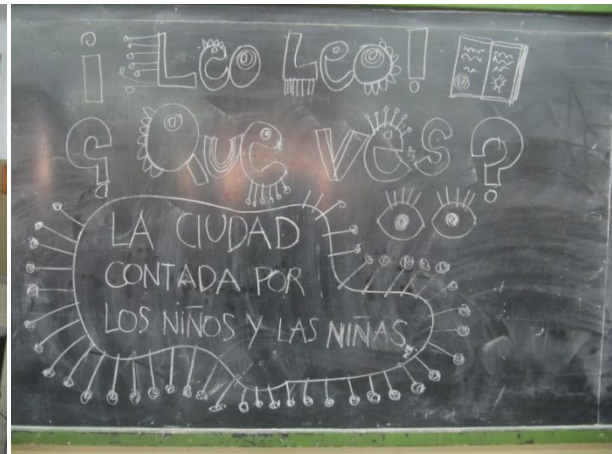 ¡ELCO LEO!
¿QUE VES?
LA CIUDAD
CONTADA POR
LOS NIÑOS Y LAS NIÑAS